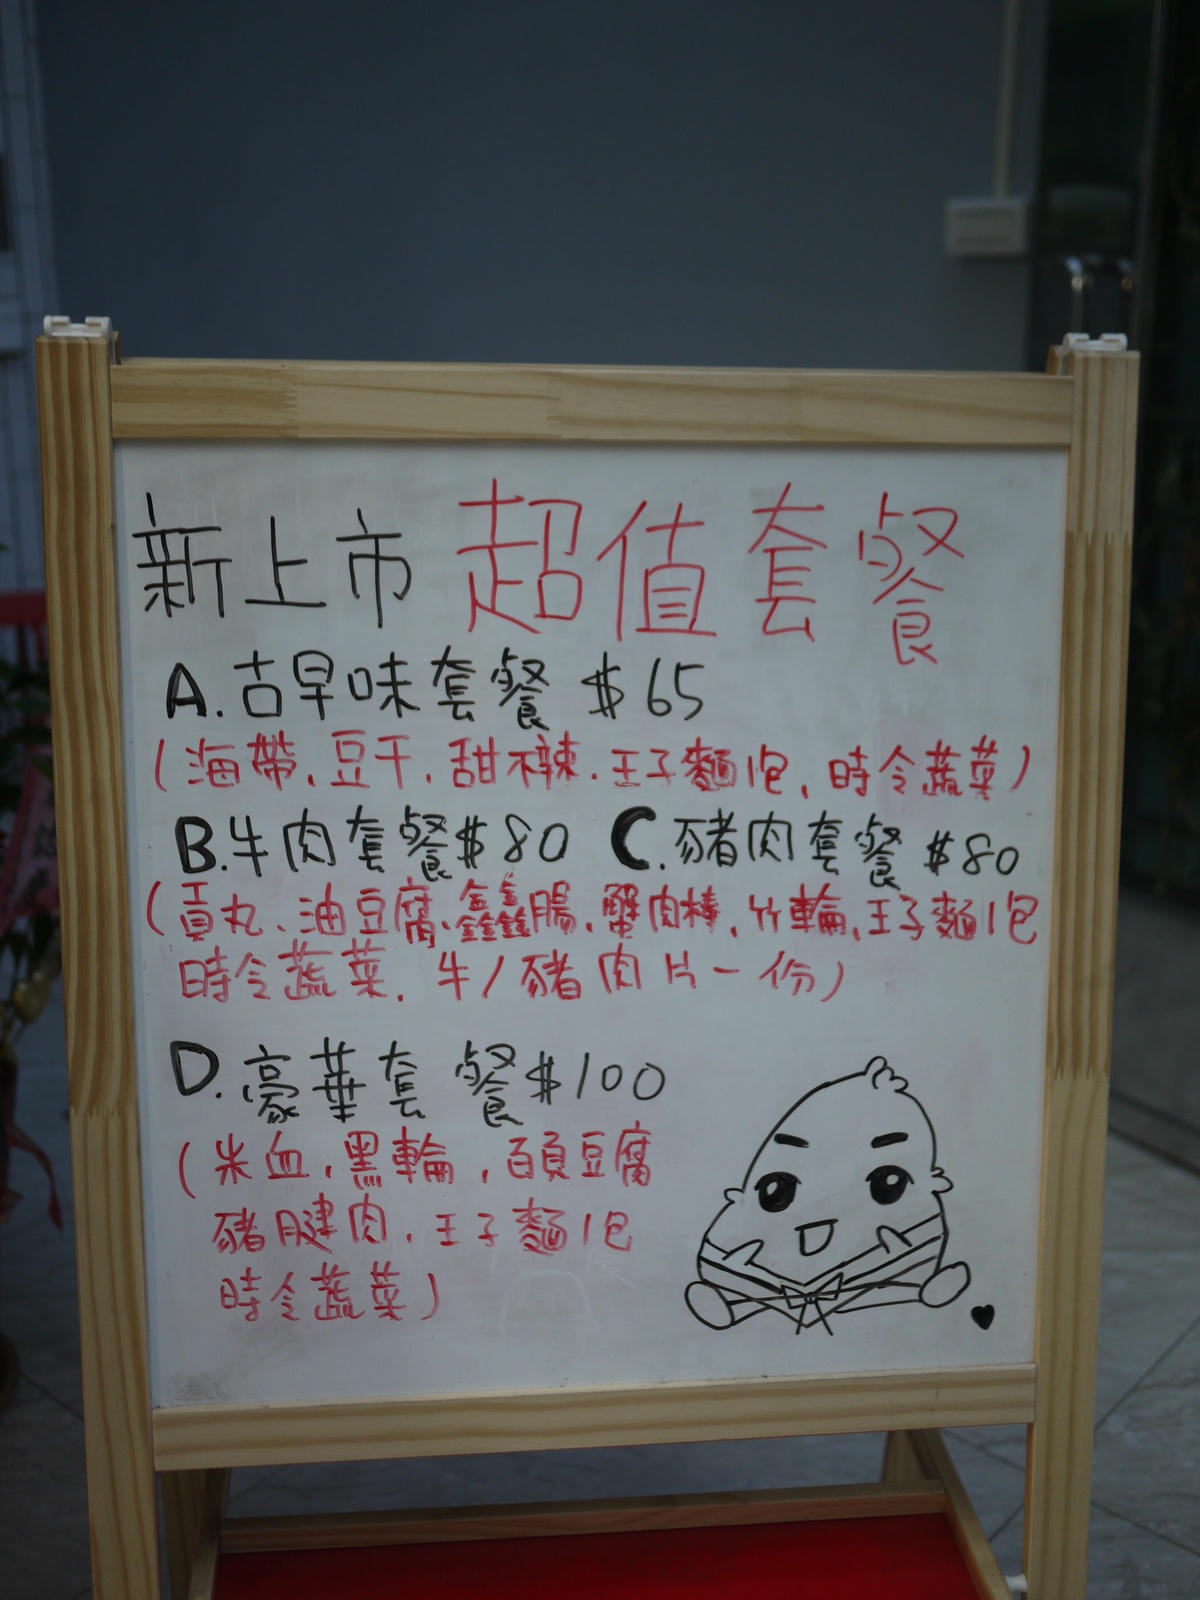 新上市 超值套餐
A.古早味套餐 $65
(海帶、豆干、甜不辣、王子麵1包、時令蔬菜)
B.牛肉套餐$80 C.豬肉套餐 $80
(貢丸、油豆腐、鑫鑫腸、蟹肉棒、竹輪、王子麵1包
時令蔬菜、牛/豬肉片一份)
D.豪華套餐$100
(米血、黑輪、百頁豆腐
豬腱肉、王子麵1包
時令蔬菜)